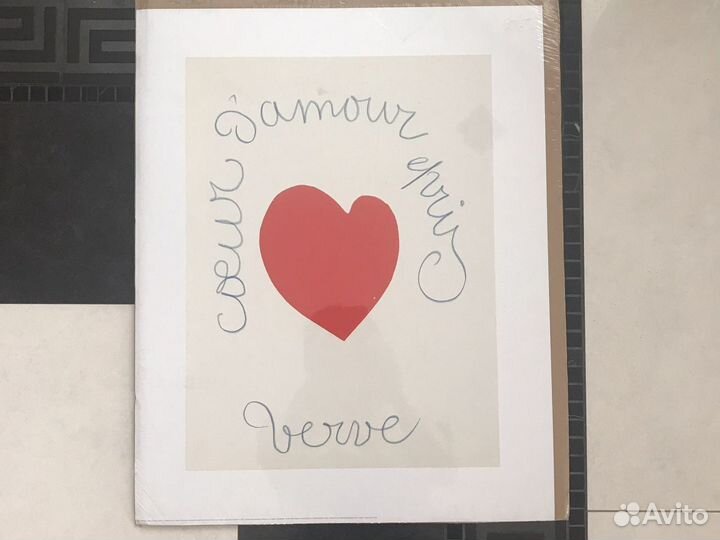 coeur d'amour epris
verve
Avito